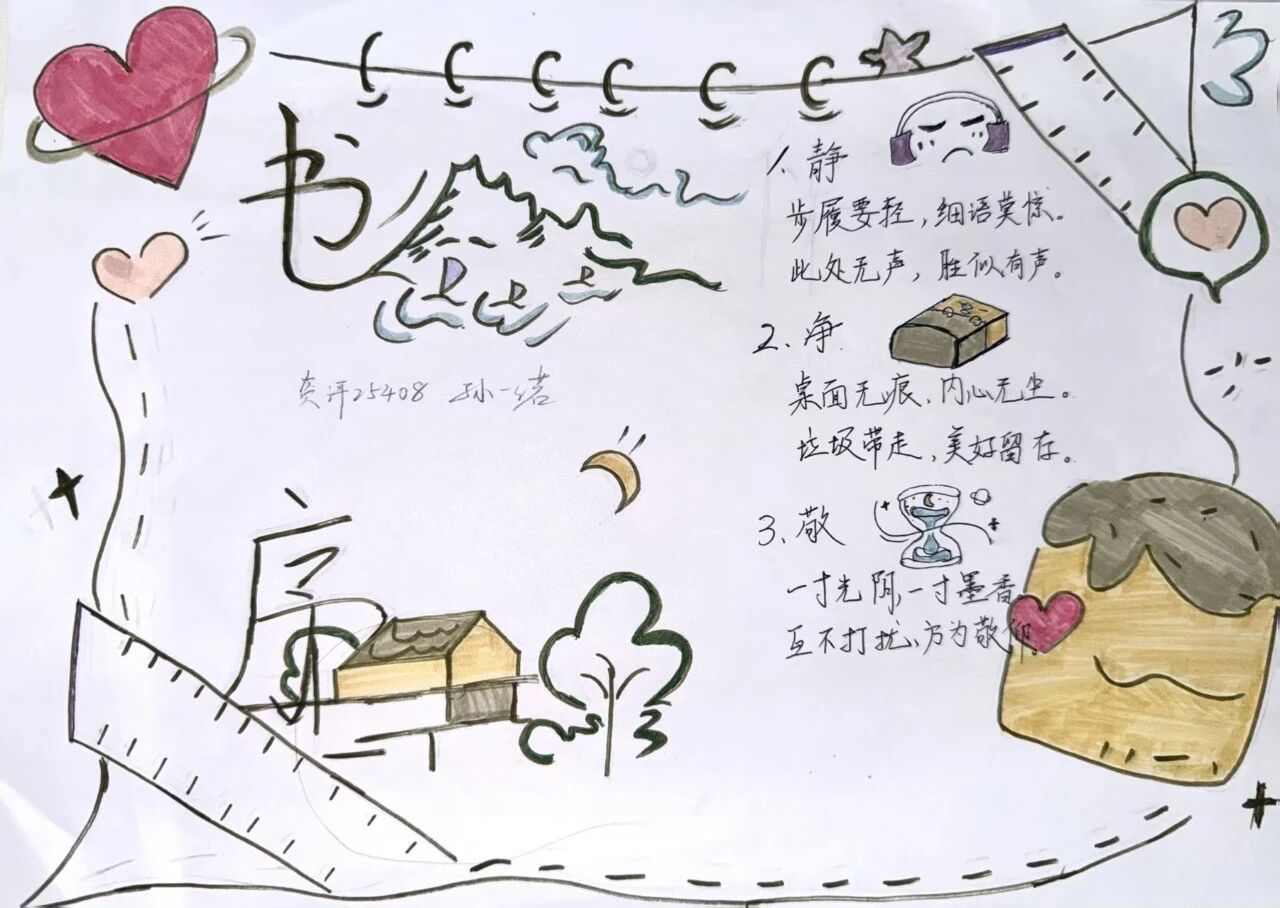 书
资评25408 孙一諾
序
1、静
步履要轻，细语莫惊。
此处无声，胜似有声。
2、净
桌面无痕、内心无尘。
垃圾带走，美好留存。
3、敬
一寸光阴，一寸墨香
互不打扰、方为敬仰